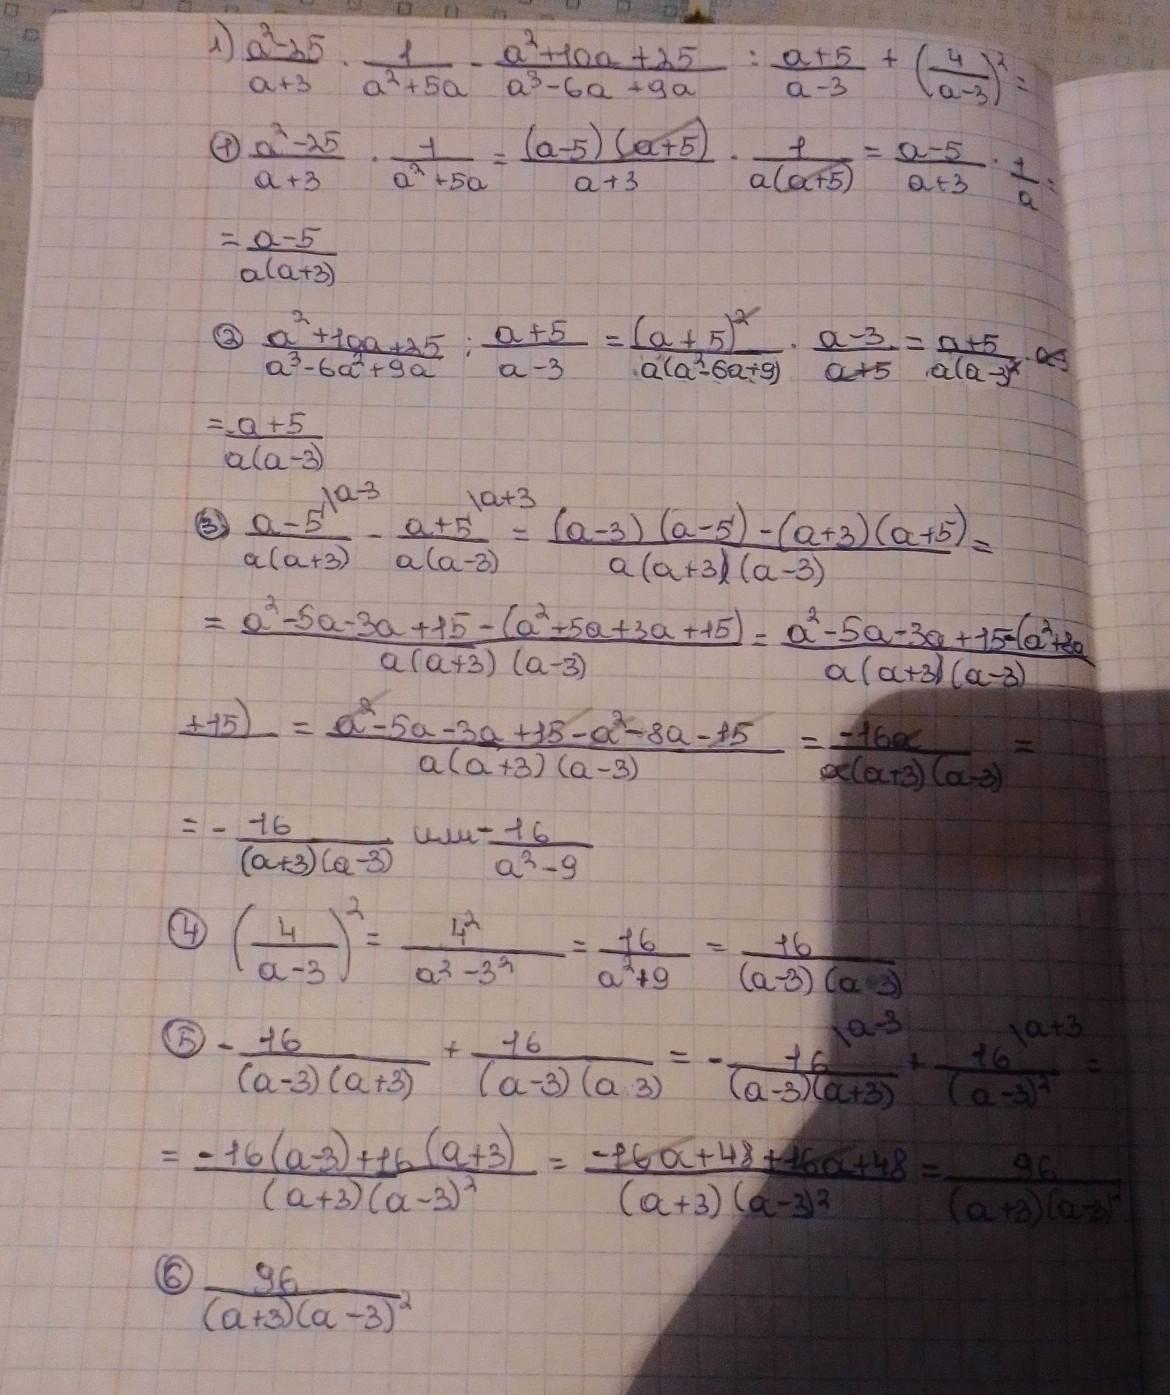 1) (a²-25)/(a+3) · 1/(a²+5a) - (a²+10a+25)/(a³-6a+9a) : (a+5)/(a-3) + (4/(a-3))² =
① (a²-25)/(a+3) · 1/(a²+5a) = ((a-5)(a+5))/(a+3) · 1/(a(a+5)) = (a-5)/(a+3) · 1/a =
= (a-5)/(a(a+3))
② (a²+10a+25)/(a³-6a²+9a) : (a+5)/(a-3) = (a+5)²/(a(a²-6a+9)) · (a-3)/(a+5) = (a+5)/(a(a-3)²) · a-3
= (a+5)/(a(a-3))
③ (a-5)/(a(a+3)) \a-3 - (a+5)/(a(a-3)) \a+3 = ((a-3)(a-5)-(a+3)(a+5))/(a(a+3)(a-3)) =
= (a²-5a-3a+15-(a²+5a+3a+15))/(a(a+3)(a-3)) = (a²-5a-3a+15-(a²+8a)/(a(a+3)(a-3))
+15) = (a²-5a-3a+15-a²-8a-15)/(a(a+3)(a-3)) = (-16a)/(a(a+3)(a-3)) =
= - 16/((a+3)(a-3)) или - 16/(a²-9)
④ (4/(a-3))² = 4²/(a²-3²) = 16/(a²+9) = 16/((a-3)(a-3))
⑤ - 16/((a-3)(a+3)) + 16/((a-3)(a-3)) = - 16/((a-3)(a+3)) \a-3 + 16/(a-3)² \a+3 =
= (-16(a-3)+16(a+3))/((a+3)(a-3)²) = (-16a+48+16a+48)/((a+3)(a-3)²) = 96/((a+3)(a-3)²)
⑥ 96/((a+3)(a-3)²)